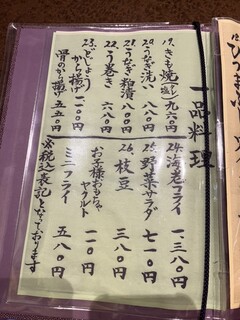 一品料理
19.きも焼(タレ・塩) 九六〇円
20.うなぎ洗い 八八〇円
21.うなぎ粕漬 八八〇円
22.う巻き 六八〇円
23.どじょうから揚げ 一一〇〇円
骨のから揚げ 五五〇円
24.海老フライ 一、三八〇円
25.野菜サラダ 七一〇円
26.枝豆 三八〇円
お子様おもちゃ
ヤクルト 一一〇円
ミニフライ 五八〇円
※税込表記となっております